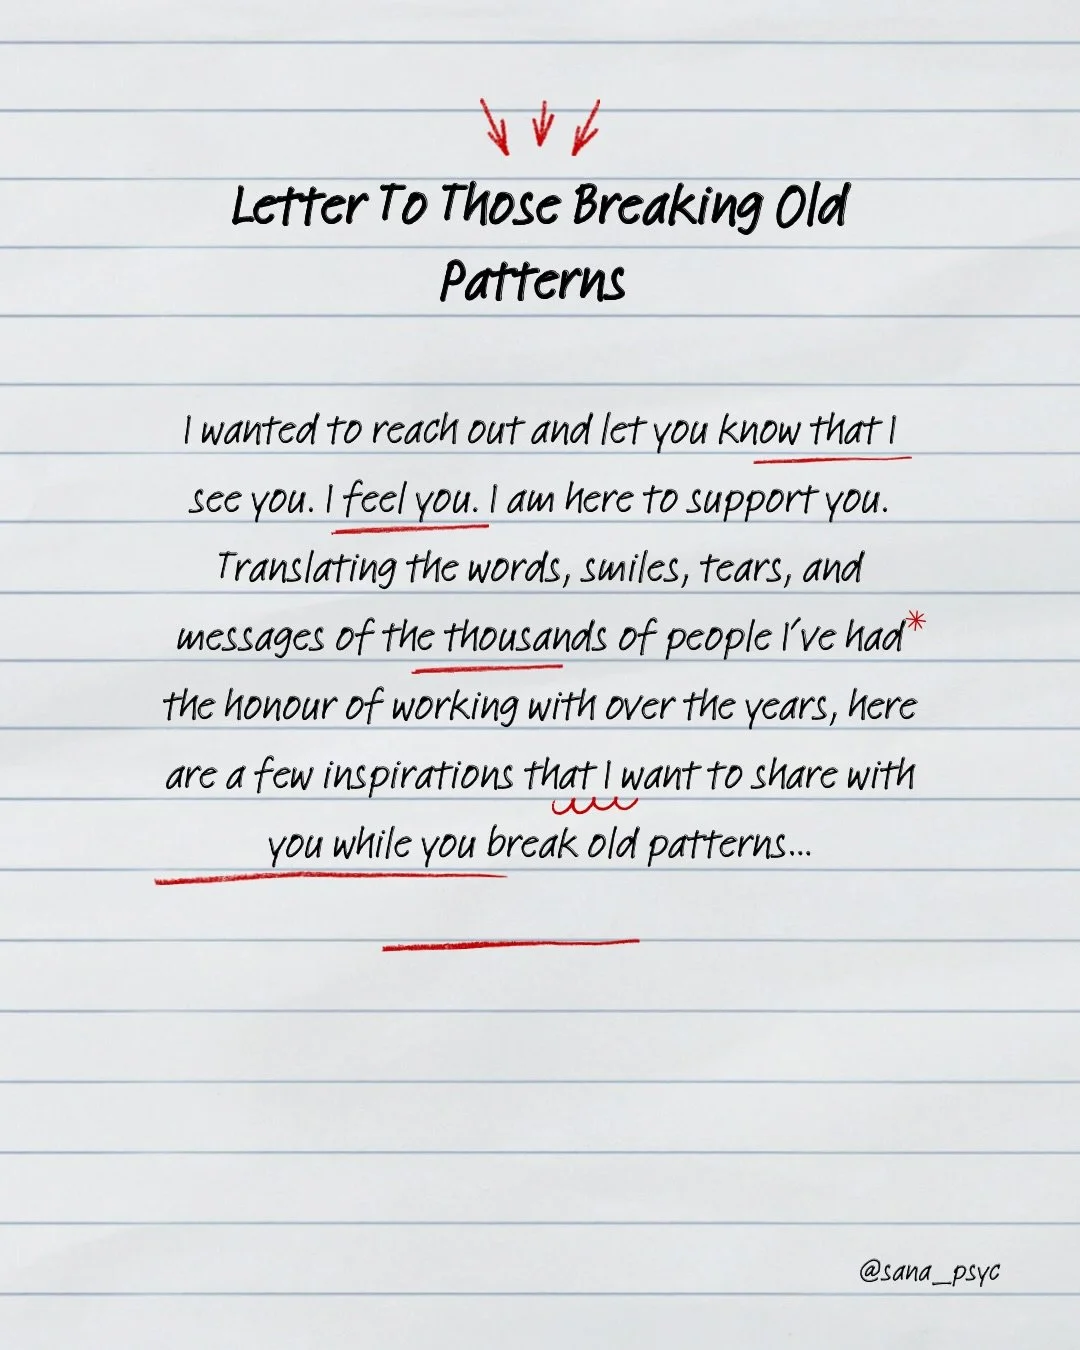 Letter To Those Breaking Old
Patterns
I wanted to reach out and let you know that I
see you. I feel you. I am here to support you.
Translating the words, smiles, tears, and
messages of the thousands of people I've had*
the honour of working with over the years, here
are a few inspirations that I want to share with
you while you break old patterns...
@sana_psyc